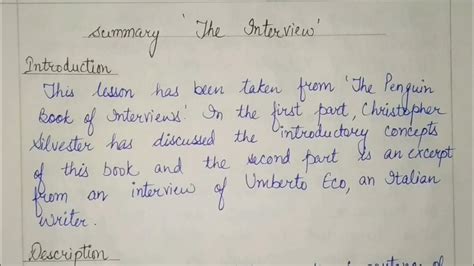 Summary 'The Interview'
Introduction
This lesson has been taken from 'The Penguin
Book of Interviews'. In the first part, Christopher
Silvester has discussed the introductory concepts
of this book and the second part is an excerpt
from an interview of Umberto Eco, an Italian
Writer.
Description